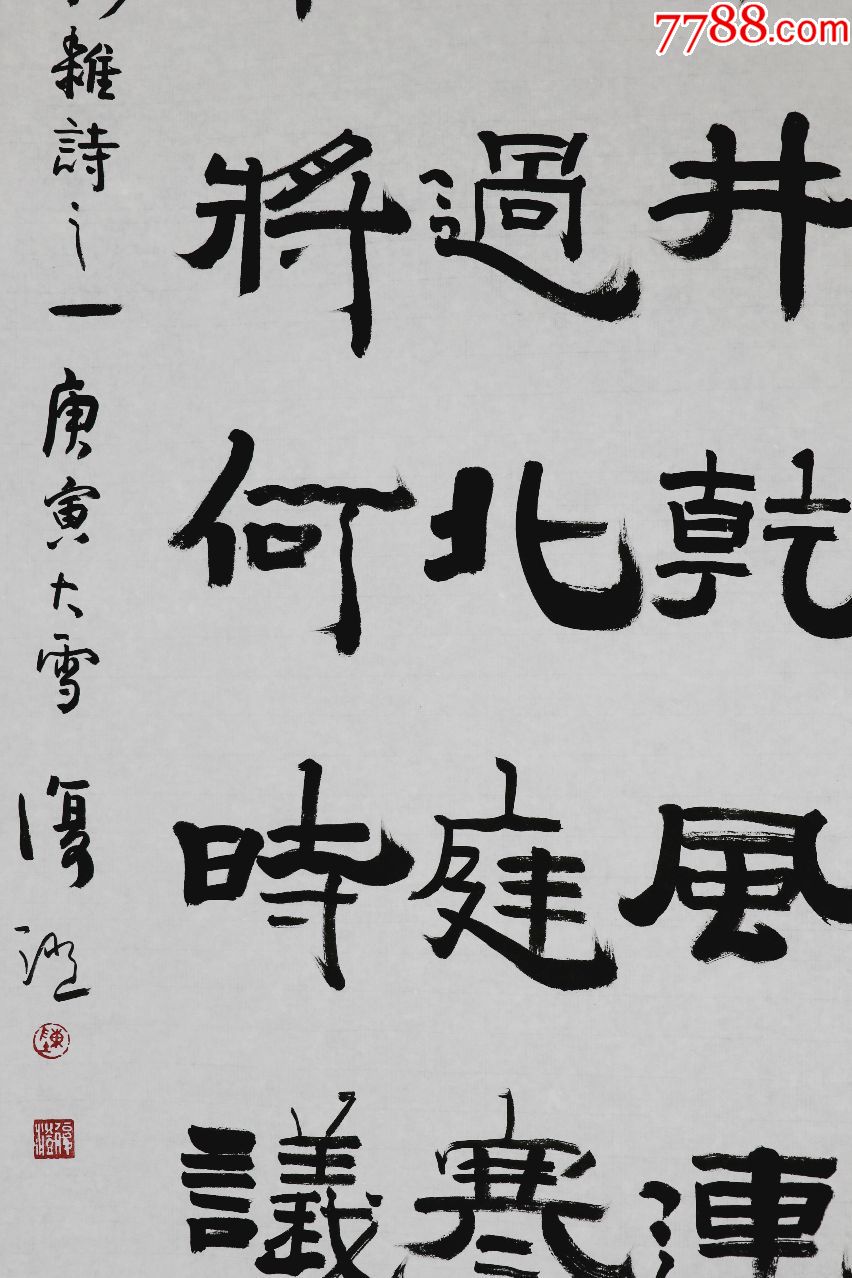 7788.com
井乾風連
過北庭寒
將何時議
雜詩之一庚寅大雪 復澄
陳
復澄